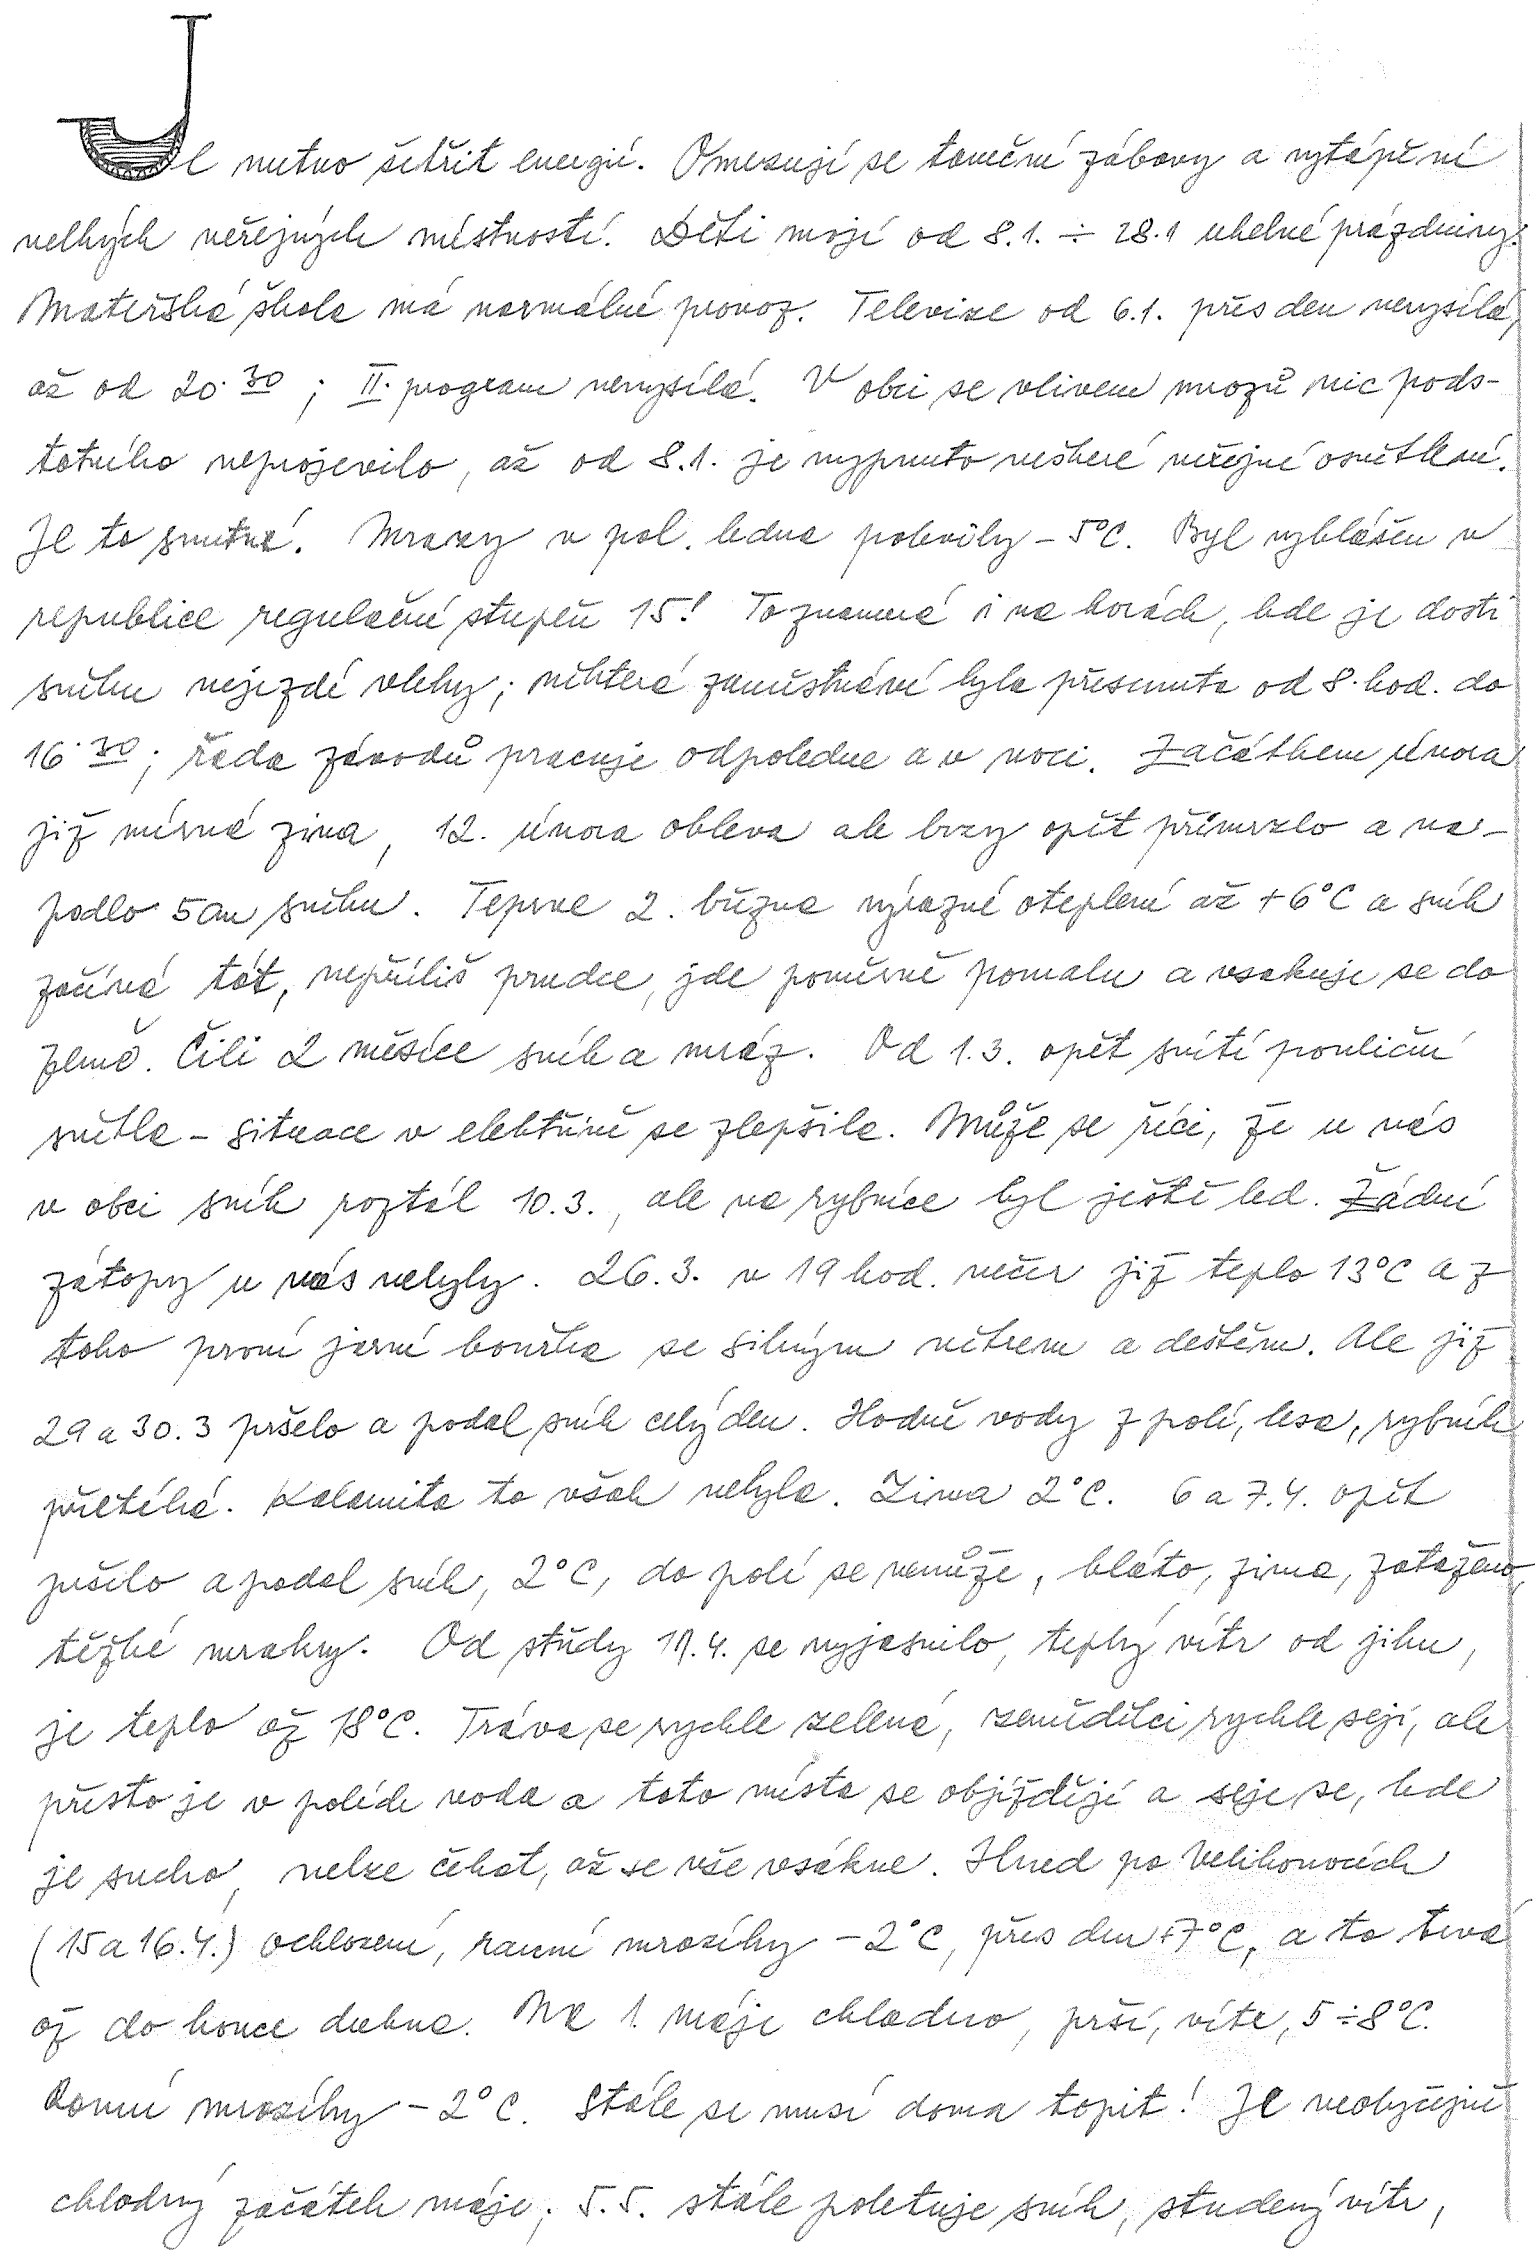 Je nutno šetřit energií. Omezují se taneční zábavy a vytápění
velkých veřejných místností. Děti mají od 8.1. ÷ 28.1 uhelné prázdniny.
Mateřská škola má normálně provoz. Televize od 6.1. přes den nevysílá,
až od 20.30; II. program nevysílá. V obci se vlivem mrozů nic pods-
tatného neprojevilo, až od 8.1. je vypnuto veškeré veřejné osvětlení.
Je to smutné. Mrazy v pol. ledna polevily -5°C. Byl vyhlášen v
republice regulační stupeň 15! To znamená i na horách, kde je dosti
sněhu nejezdí vleky; některá zaměstnání byla přesunuta od 8. hod. do
16.30; řada závodů pracuje odpoledne a v noci. Začátkem února
již mírná zima, 12. února obleva ale brzy opět přimrzlo a na-
padlo 5cm sněhu. Teprve 2. března výrazné oteplení až +6°C a sníh
začíná tát, nepříliš prudce, jde poměrně pomalu a vsakuje se do
země. Čili 2 měsíce sníh a mráz. Od 1.3. opět svítí pouliční
světla - situace v elektřině se zlepšila. Může se říci, že u nás
v obci sníh roztál 10.3., ale na rybníce byl ještě led. Žádné
zátopy u nás nebyly. 26.3. v 19 hod. večer již teplo 13°C a z
toho první jarní bouřka se silným větrem a deštěm. Ale již
29 a 30.3 pršelo a padal sníh celý den. Hodně vody z polí, lesa, rybník
přetéká. Kalamita to však nebyla. Zima 2°C. 6 a 7.4. opět
pršelo a padal sníh, 2°C, do polí se nemůže, bláto, zima, zataženo,
těžké mraky. Od středy 11.4. se vyjasnilo, teplý vítr od jihu,
je teplo až 18°C. Tráva se rychle zelená, zemědělci rychle sejí, ale
přesto je v polích voda a tato místa se objíždějí a seje se, kde
je sucho, nelze čekat, až se vše vsákne. Hned po Velikonocích
(15 a 16.4.) ochlazení, ranní mrazíky -2°C, přes den +7°C, a to trvá
až do konce dubna. Na 1. máje chladno, prší, vítr, 5÷8°C.
Ranní mrazíky -2°C. Stále se musí doma topit! Je neobyčejně
chladný začátek máje; 5.5. stále poletuje sníh, studený vítr,